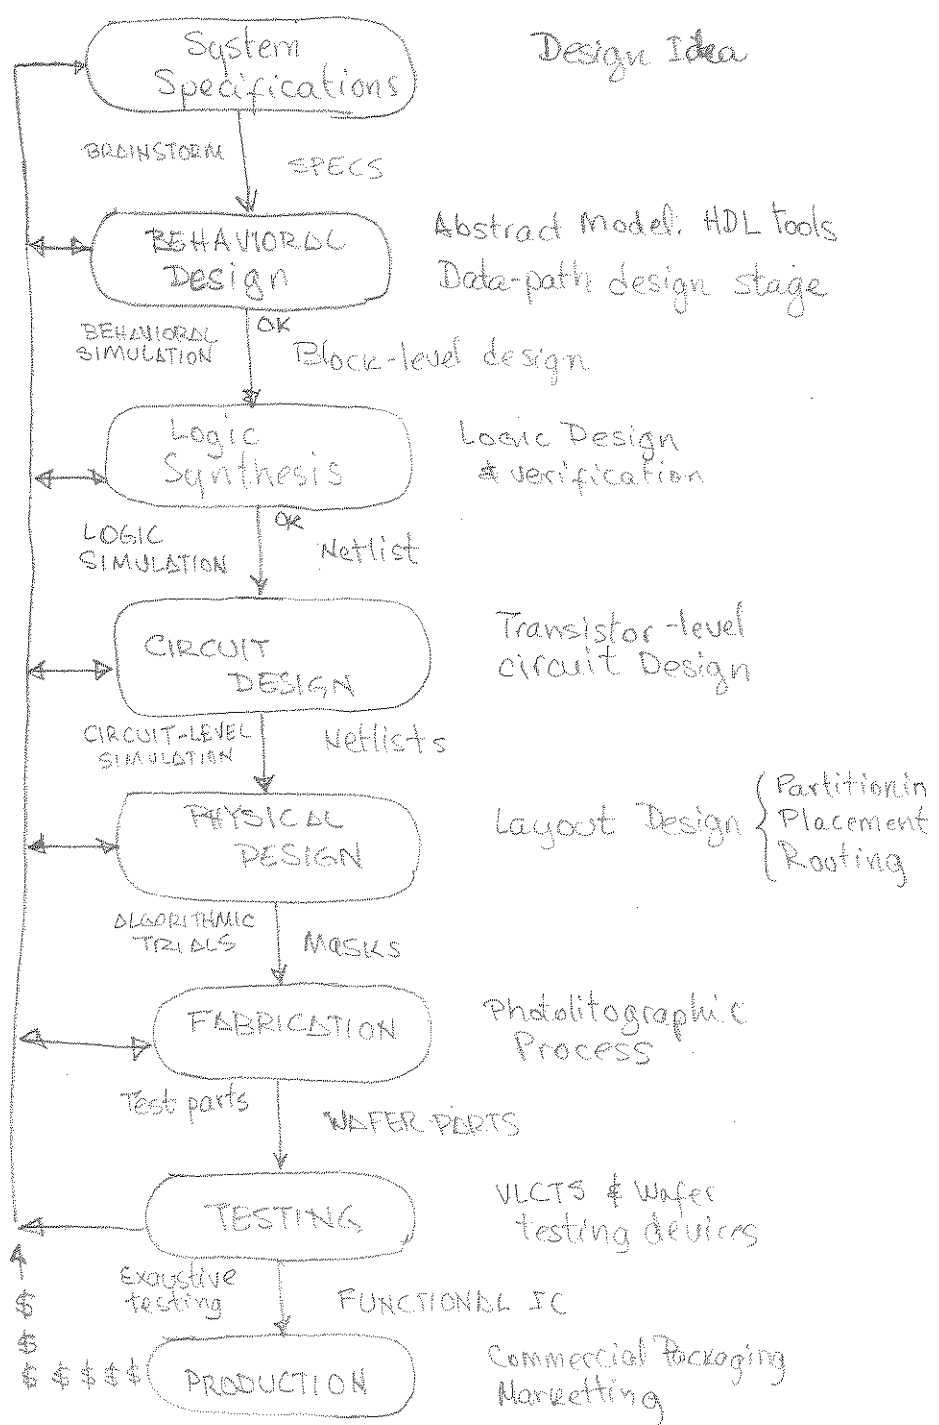 System
Specifications
Design Idea
BRAINSTORM
SPECS
BEHAVIORAL
Design
Abstract Model. HDL tools
Data-path design stage
OK
BEHAVIORAL
SIMULATION
Block-level design
Logic
Synthesis
Logic Design
& verification
OK
LOGIC
SIMULATION
Netlist
CIRCUIT
DESIGN
Transistor-level
circuit Design
CIRCUIT-LEVEL
SIMULATION
Netlists
PHYSICAL
DESIGN
Layout Design
Partitionin
Placement
Rooting
ALGORITHMIC
TRIALS
Masks
FABRICATION
Photolitographic
Process
Test parts
WAFER-PARTS
TESTING
VLCTS & Wafer
testing devices
Exaustive
testing
FUNCTIONAL IC
$
$
$ $ $ $ $
PRODUCTION
Commercial Packaging
Marketting